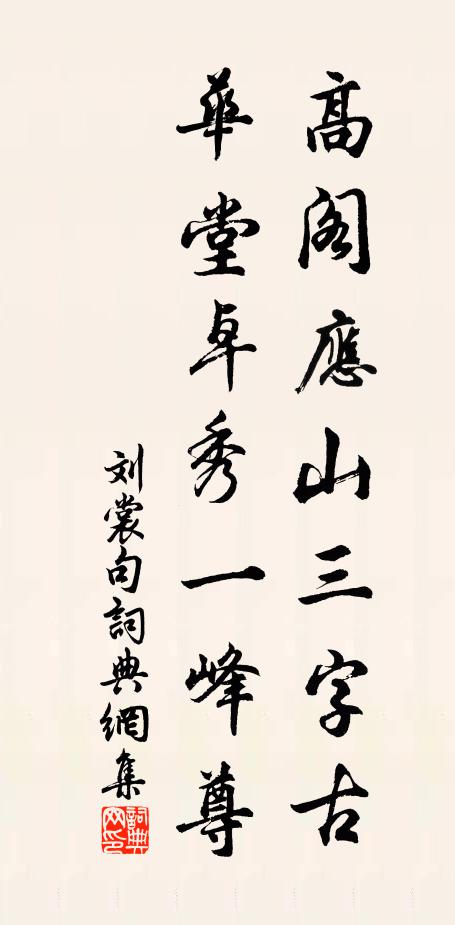 高阁應山三字古
華堂卓秀一峰尊
刘裳句詞典網集
詞典网印